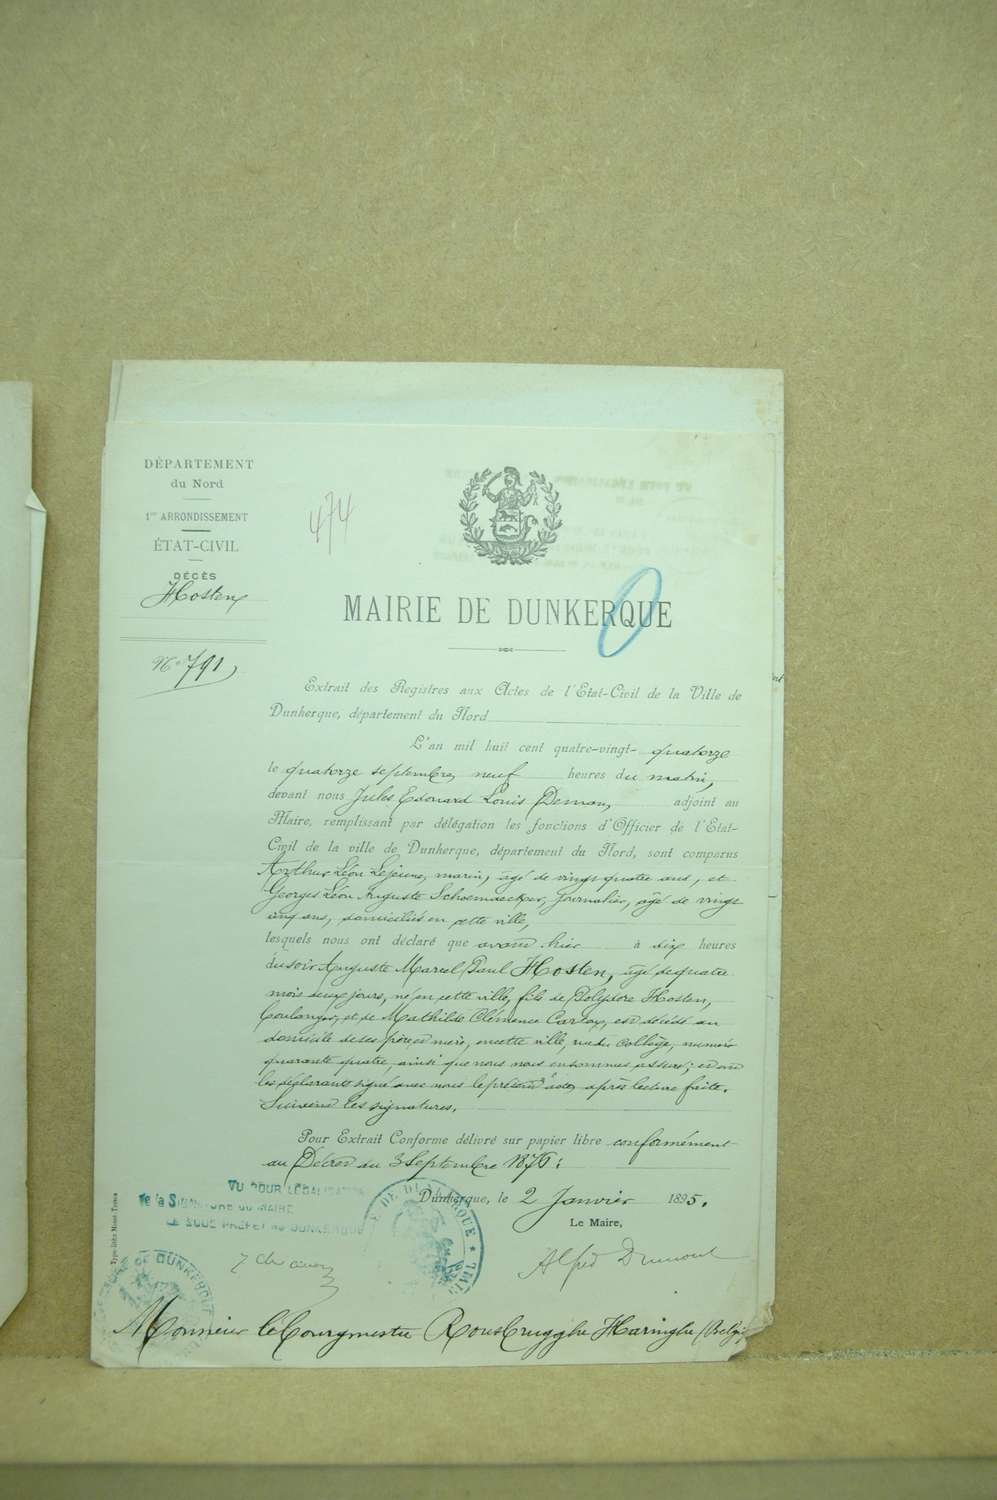 DÉPARTEMENT
du Nord
1er ARRONDISSEMENT
ÉTAT-CIVIL
DÉCÈS
Hosten
No 791
474
MAIRIE DE DUNKERQUE
Extrait des Registres aux Actes de l'Etat-Civil de la Ville de
Dunkerque, département du Nord
L'an mil huit cent quatre-vingt- quatorze
le quatorze septembre, neuf heures du matin,
devant nous Jules Edouard Louis adjoint au
Maire, remplissant par délégation les fonctions d'Officier de l'Etat-
Civil de la ville de Dunkerque, département du Nord, sont comparus
Arthur Léon Lejeune, marin, âgé de vingt quatre ans, et
Georges Léon Auguste journalier, âgé de vingt
cinq ans, domiciliés en cette ville,
lesquels nous ont déclaré que avant hier à dix heures
du soir Auguste Marcel Paul Hosten, âgé de quatre
mois deux jours, né en cette ville, fils de Polydore Hosten,
boulanger, et de Mathilde Clémence est décédé au
domicile de ses père et mère, en cette ville, rue du Collège, numéro
quarante quatre, ainsi que nous nous en sommes assuré; et ont
les déclarants signé avec nous le présent acte, après lecture faite.
Suivent les signatures.
Pour Extrait Conforme délivré sur papier libre conformément
au Décret du 3 Septembre 1876:
Dunkerque, le 2 Janvier 1895.
Le Maire,
Alfred Dumont
VU POUR LÉGALISATION
de la SIGNATURE DU MAIRE
LE SOUS PRÉFET DE DUNKERQUE
DE DUNKERQUE
DE DUNKERQUE
Monsieur le Bourgmestre Rousbrugghe Haringhe